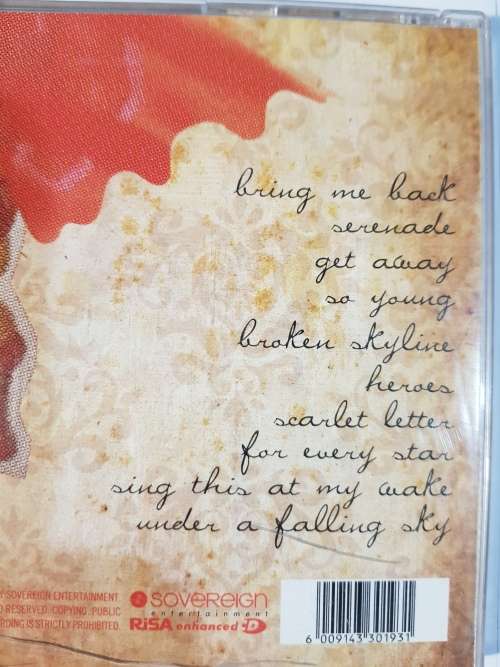 bring me back
serenade
get away
so young
broken skyline
heroes
scarlet letter
for every star
sing this at my wake
under a falling sky
SOVEREIGN ENTERTAINMENT
RESERVED. COPYING PUBLIC
IS STRICTLY PROHIBITED.
sovereign
entertainment
RiSA enhanced
6 009143 301931